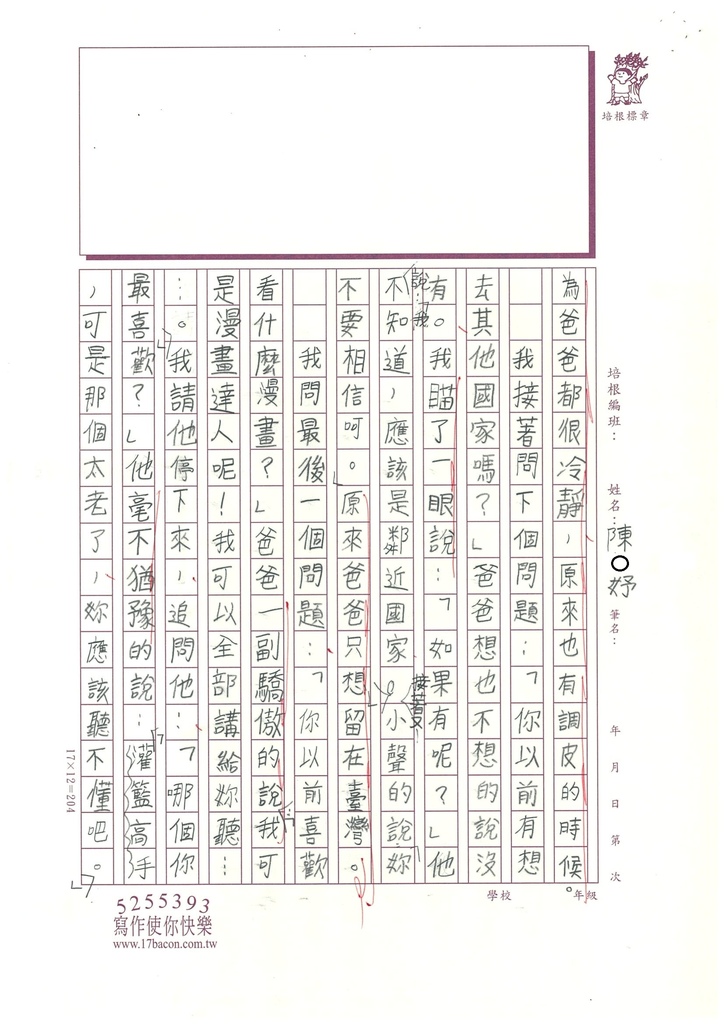 為爸爸都很冷靜，原來也有調皮的時候。
我接著問下個問題：「你以前有想
去其他國家嗎？」爸爸想也不想的說沒
有。我瞄了一眼說：「如果有呢？」他
說：「我
不知道，應該是鄰近國家」
接著又
小聲的說「妳
不要相信呵。」原來爸爸只想留在臺灣。
我問最後一個問題：「你以前喜歡
看什麼漫畫？」爸爸一副驕傲的說：「我可
是漫畫達人呢！我可以全部講給妳聽…
…。」我請他停下來，追問他：「哪個你
最喜歡？」他毫不猶豫的說：「灌籃高手
，可是那個太老了，妳應該聽不懂吧。」
培根標章
培根編班：
姓名：陳○妤
筆名：
年 月 日 第 次
學校 年級
17×12=204
5255393
寫作使你快樂
www.17bacon.com.tw